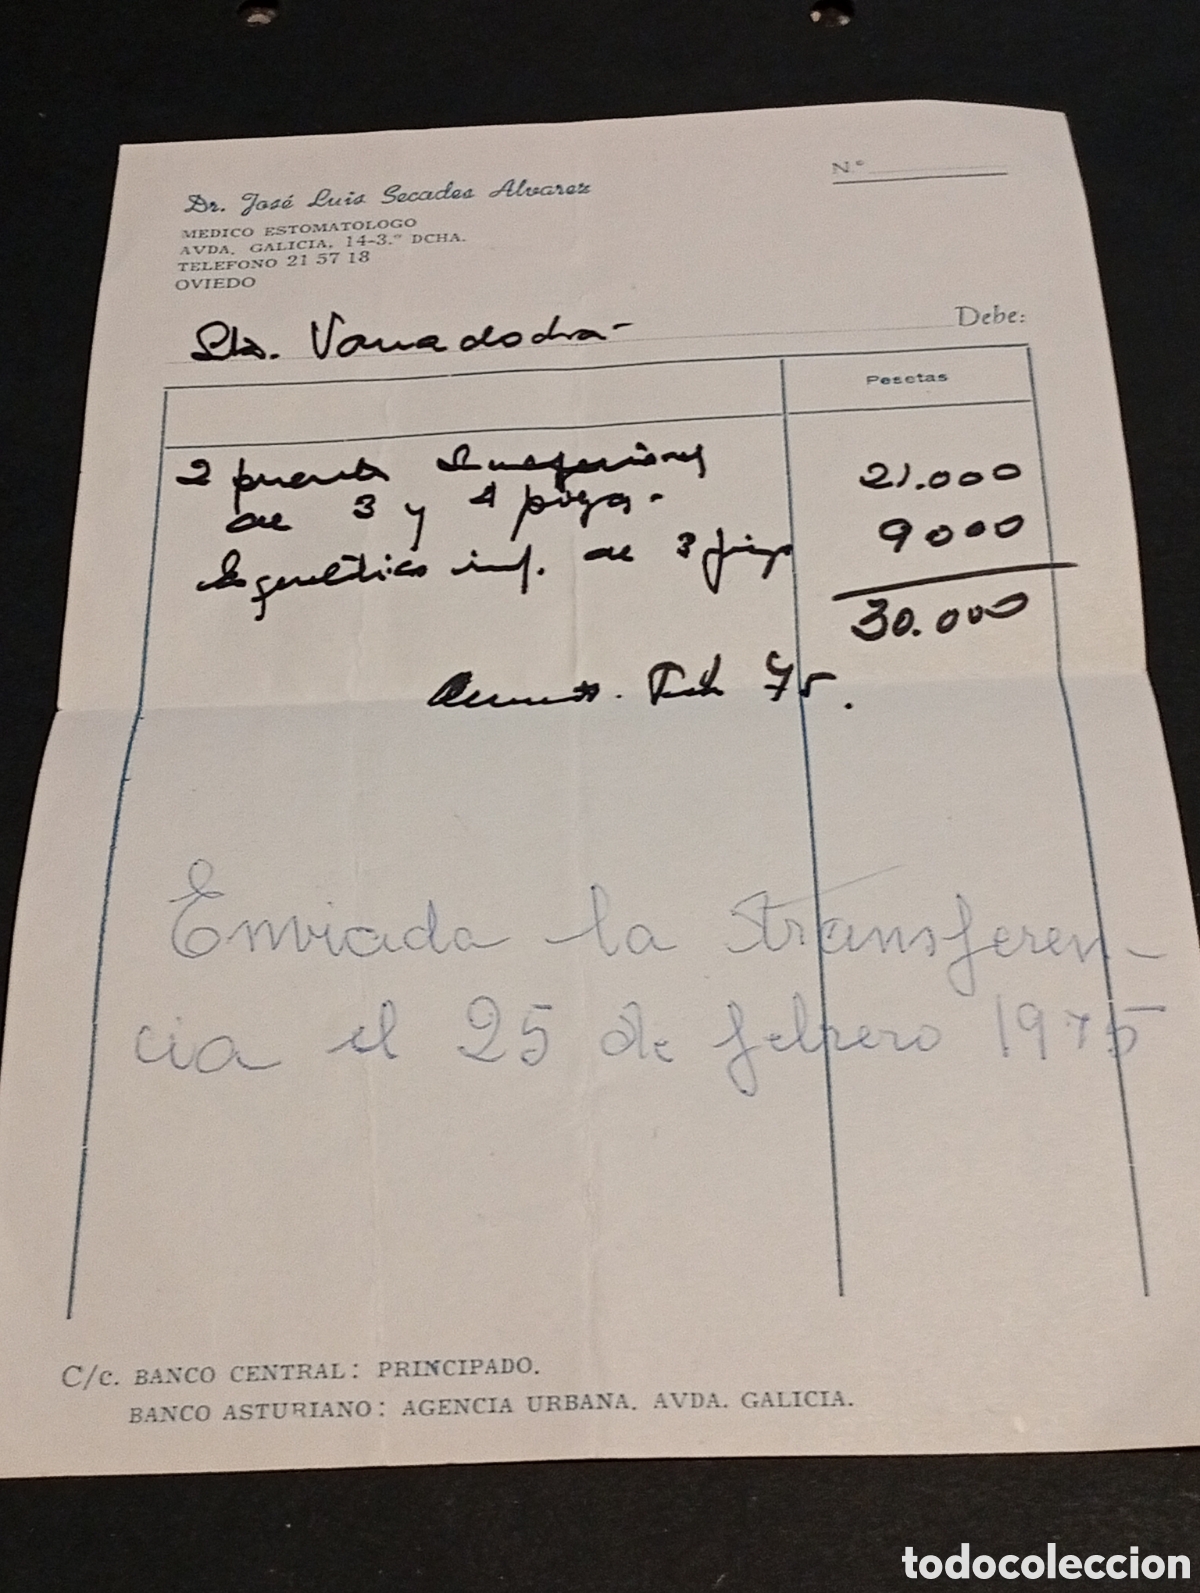 N.º
Dr. José Luis Secades Alvarez
MEDICO ESTOMATOLOGO
AVDA. GALICIA, 14-3.º DCHA.
TELEFONO 21 57 18
OVIEDO
Debe:
Pesetas
2 21.000
de 3 y 4 piezas-
inf. de 3 9000
30.000
75.
Enviada la transferen-
cia el 25 de febrero 1975
C/c. BANCO CENTRAL: PRINCIPADO.
BANCO ASTURIANO: AGENCIA URBANA. AVDA. GALICIA.
todocoleccion